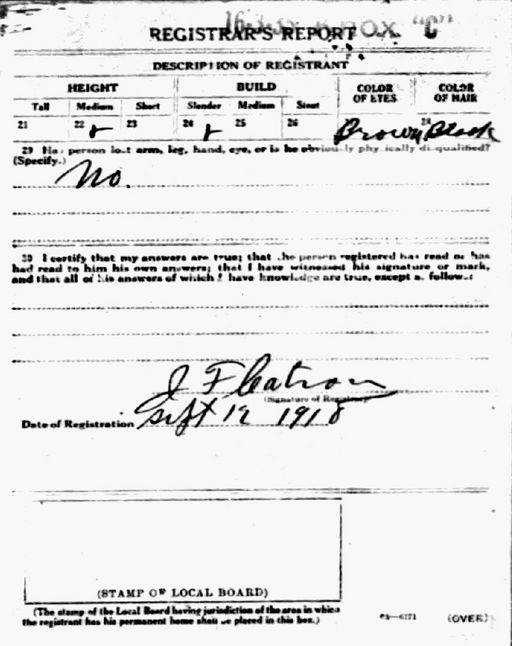 REGISTRAR'S REPORT "C"
DESCRIPTION OF REGISTRANT
HEIGHT BUILD COLOR OF EYES COLOR OF HAIR
Tall Medium Short Slender Medium Stout
21 22 23 24 25 26 Brown Black
29 Has person lost arm, leg, hand, eye, or is he obviously physically disqualified?
(Specify.)
No.
30 I certify that my answers are true; that the person registered has read or has
had read to him his own answers; that I have witnessed his signature or mark,
and that all of his answers of which I have knowledge are true, except as follows:
J F
(Signature of Registrar)
Date of Registration Sept 12 1918
(STAMP OF LOCAL BOARD)
(The stamp of the Local Board having jurisdiction of the area in which
the registrant has his permanent home shall be placed in this box.)
(OVER)